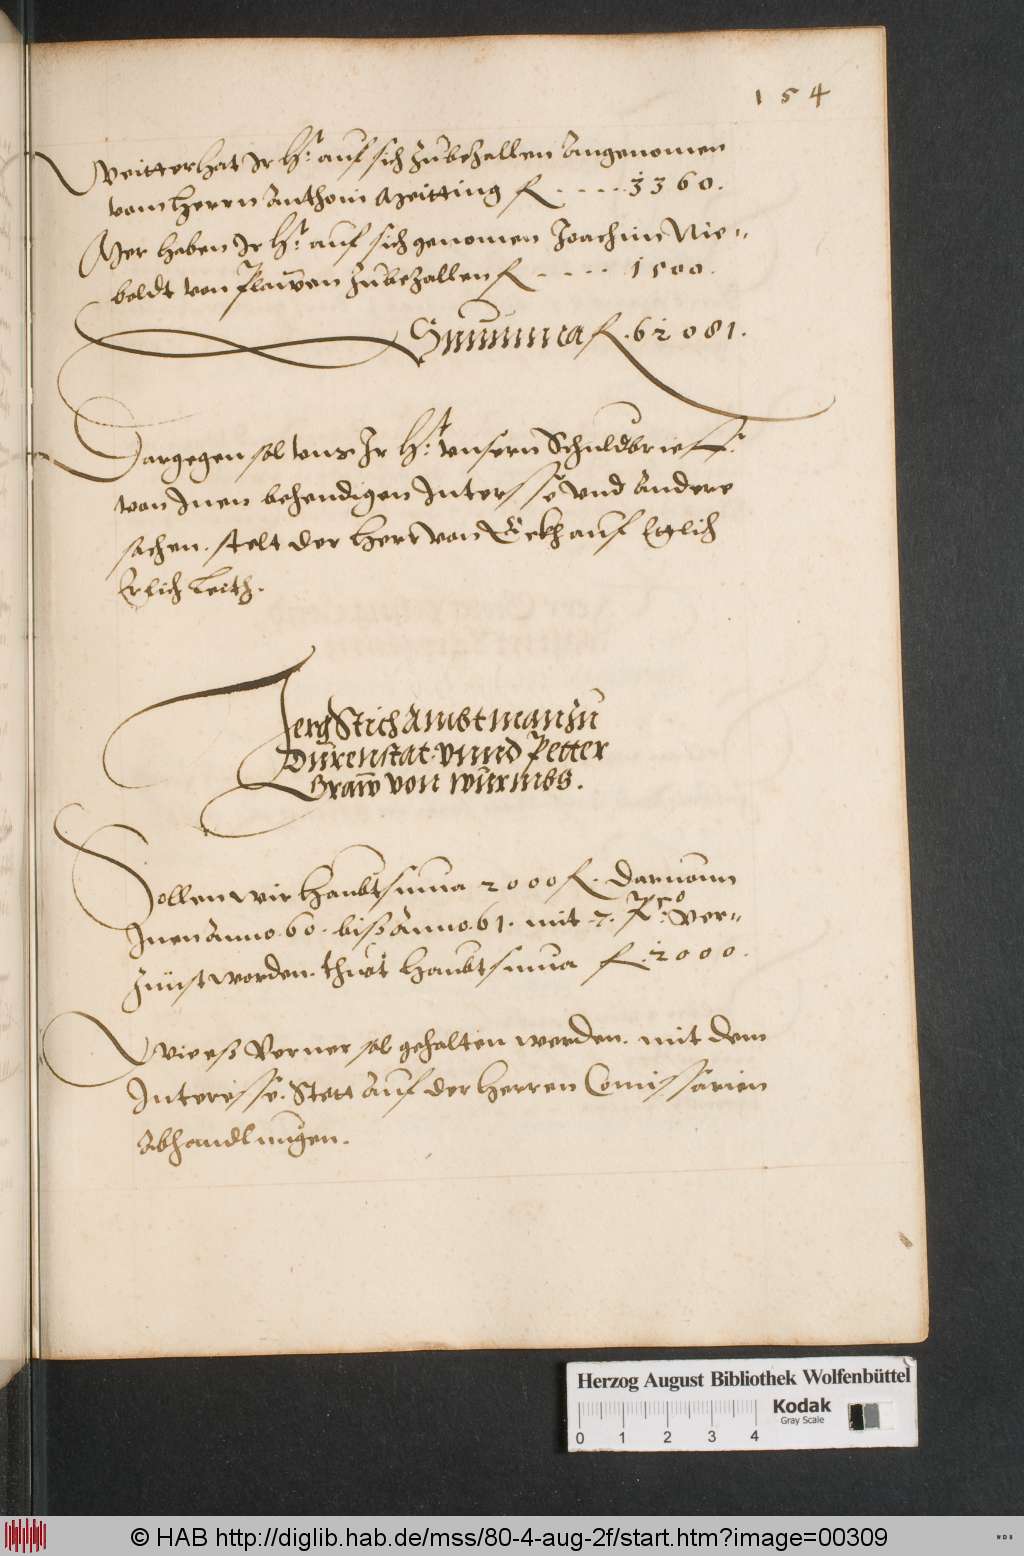 154
Weitter hat Ir Hr: auf sich zu bezallen Angenomen
vom herrn Anthoni Meitting fl. . . . . 3360.
Mer haben Ir Hr: auf sich genomen Joachim Nie-
boldt von Plawen zu bezallen fl. - - - - 1500.
Summa fl. 62081.
Dargegen sol uns Ir Hr: unsern Schuldbrieff.
von Inen behendigen Interesse und Andere
sachen. stelt der Herr von Eckh auf Etlich
Erlich Leith.
Jerg Stich Ambtman zu
Durenstat. vnnd Petter
Graw von wurmbs.
Sollen wir Haubtsuma 2000 fl. Darvonn
Inen Anno. 60. biss Anno. 61. mit 7. Pr Co Ver-
zinst worden. thuet Haubtsuma fl. 2000.
Wie ess Verner sol gehalten werden. mit dem
Interesse. Stett Auf der Herren Comissarien
Abhandlungen.
Herzog August Bibliothek Wolfenbüttel
Kodak
Gray Scale
0 1 2 3 4
© HAB http://diglib.hab.de/mss/80-4-aug-2f/start.htm?image=00309